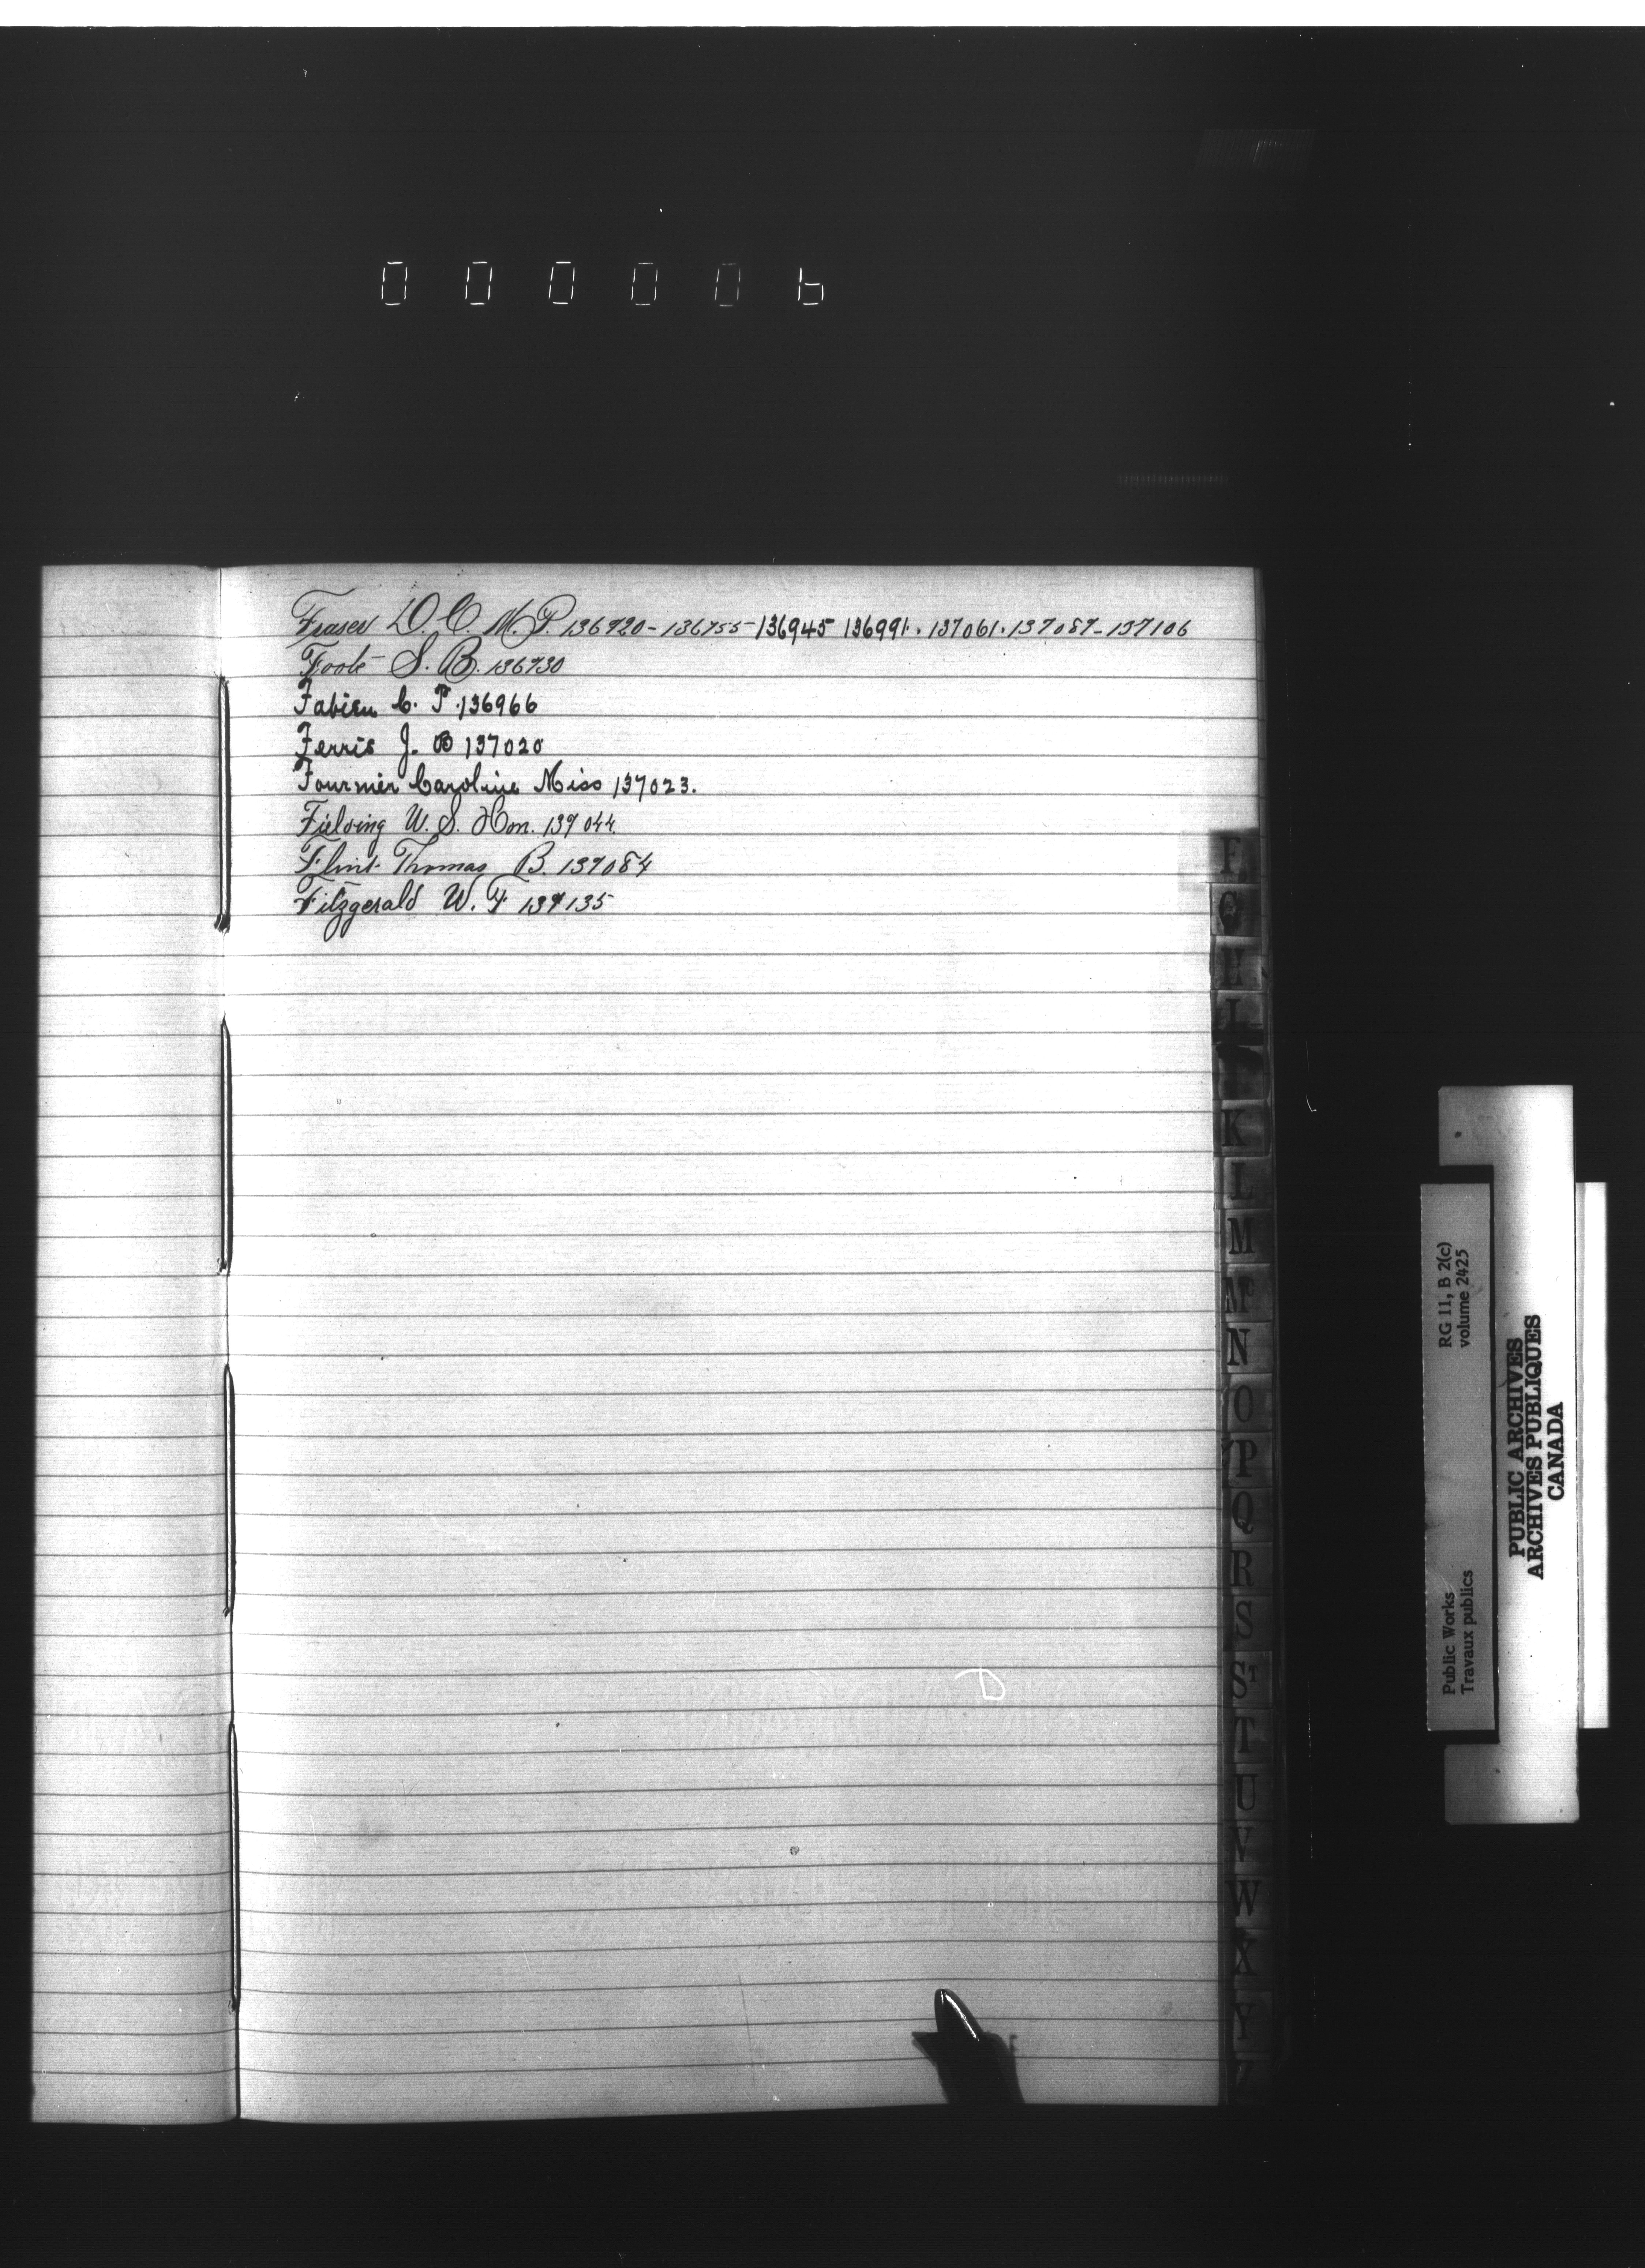 000006
Fraser D. C. M.P. 136720 - 136755 - 136945 136991. 137061. 137087 - 137106
Foote S. B. 136730
Fabien C. P. 136966
Ferris J. B 137020
Fournier Caroline Miss 137023.
Fielding W. S. Hon. 137044
Flint Thomas B. 137084
Fitzgerald W. F 137135
F
G
H
I
K
L
M
Mc
N
O
P
Q
R
S
St
T
U
V
W
X
Y
Z
RG 11, B 2(c)
volume 2425
Public Works
Travaux publics
PUBLIC ARCHIVES
ARCHIVES PUBLIQUES
CANADA